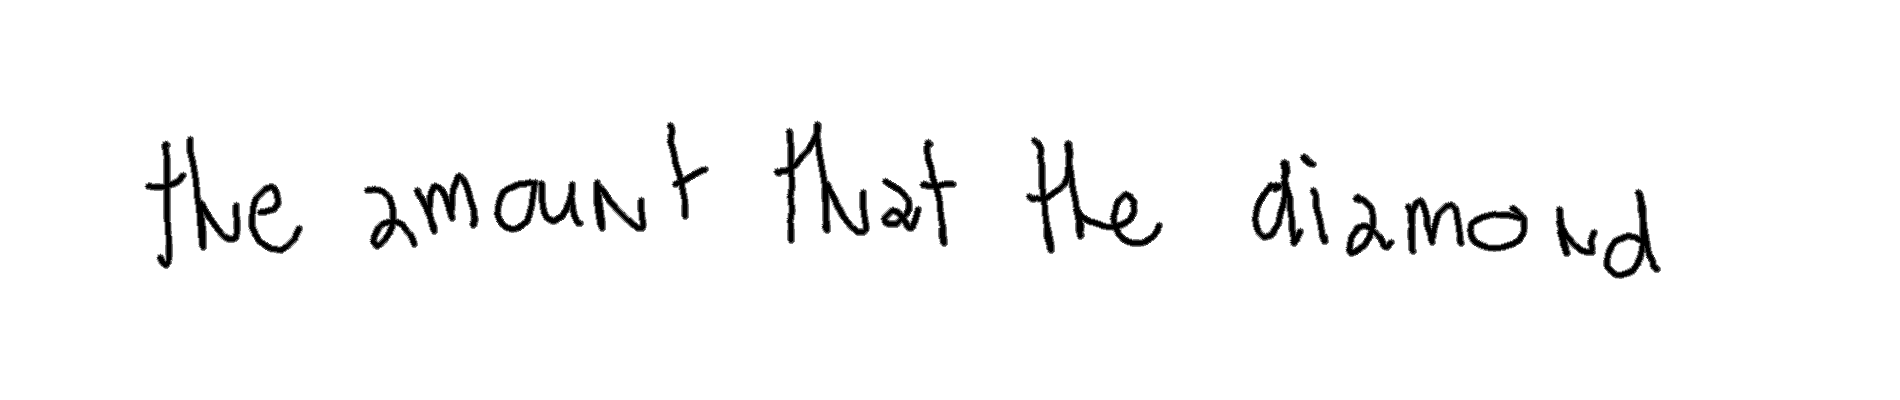 the amount that the diamond